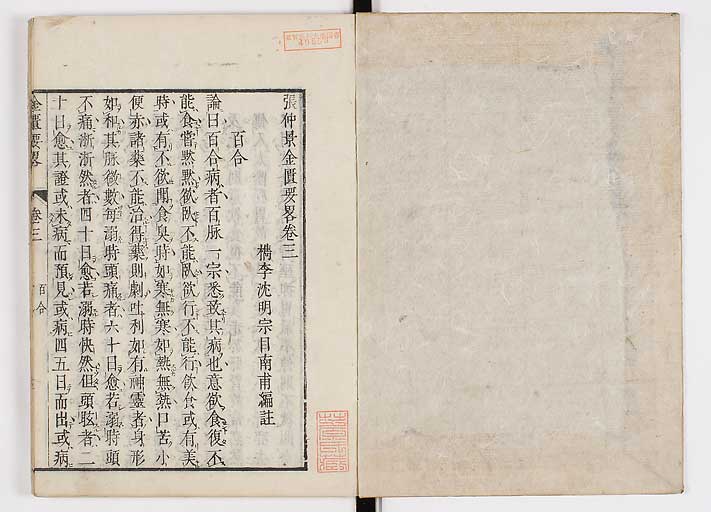 張仲景金匱要畧卷三
檇李沈明宗目南甫編註
百合
論曰百合病者百脉一宗悉致其病也意欲食復不
能食嘗默默欲臥不能臥欲行不能行飲食或有美
時或有不欲聞食臭時如寒無寒如熱無熱口苦小
便赤諸藥不能治得藥則劇吐利如有神靈者身形
如和其脉微數每溺時頭痛者六十日愈若溺時頭
不痛淅淅然者四十日愈若溺時快然但頭眩者二
十日愈其證或未病而預見或病四五日而出或病
金匱要畧
卷三
百合